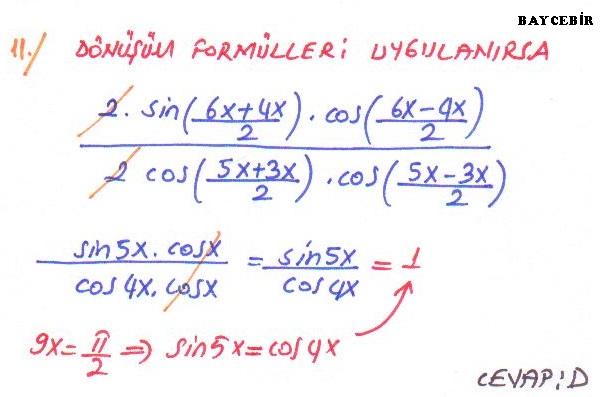 BAYCEBİR
11./ DÖNÜŞÜM FORMÜLLERİ UYGULANIRSA
2. sin(6x+4x/2) . cos(6x-4x/2)
2 cos(5x+3x/2) . cos(5x-3x/2)
sin5x. cosx / cos4x. cosx = sin5x / cos4x = 1
9x = π/2 ⇒ sin5x = cos4x
CEVAP: D